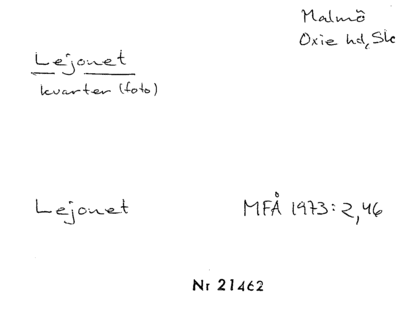 Malmö
Oxie hd, Sk
Lejonet
kvarter (foto)
Lejonet MFÅ 1973:2,46
Nr 21462